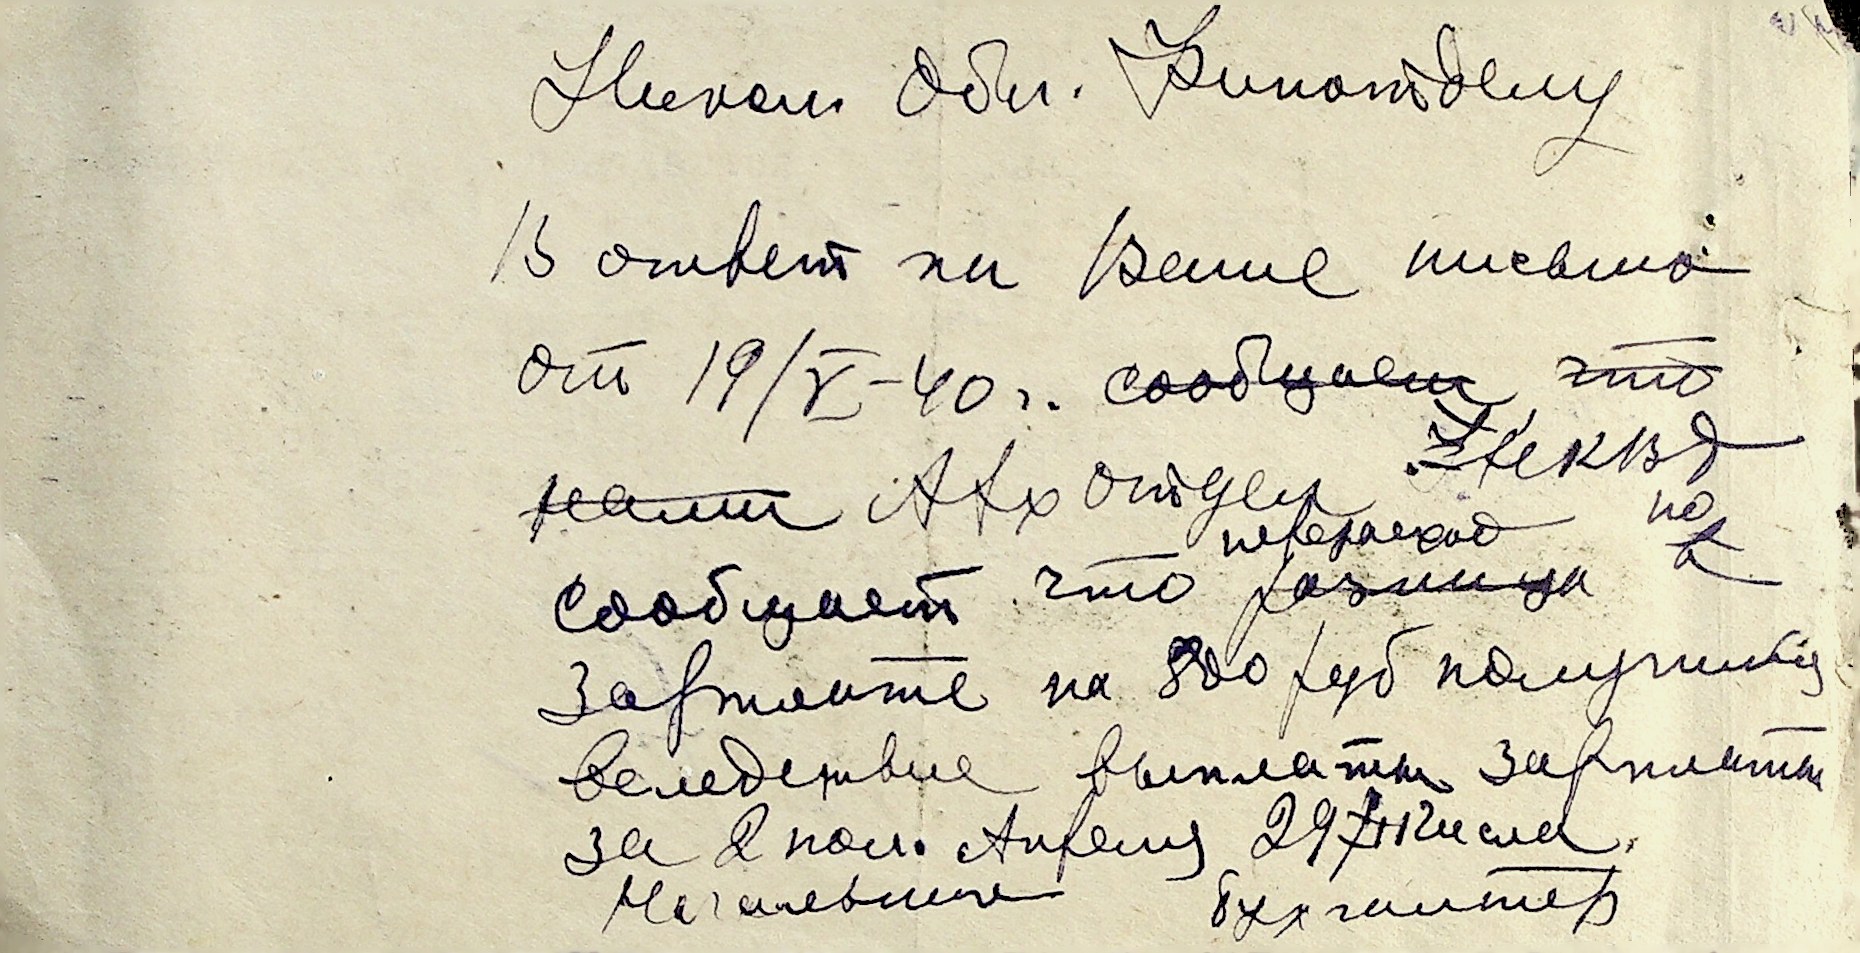 Никол. Обл. Финотделу
В ответ на Ваше письмо
от 19/V-40 г. сообщаем что
нами АХ отдел НКВД
сообщает что перерасход разница по в
зарплате на 800 руб получился
вследствие выплаты зарплаты
за 2 пол. Апреля 29/IV числа.
Начальник Бухгалтер